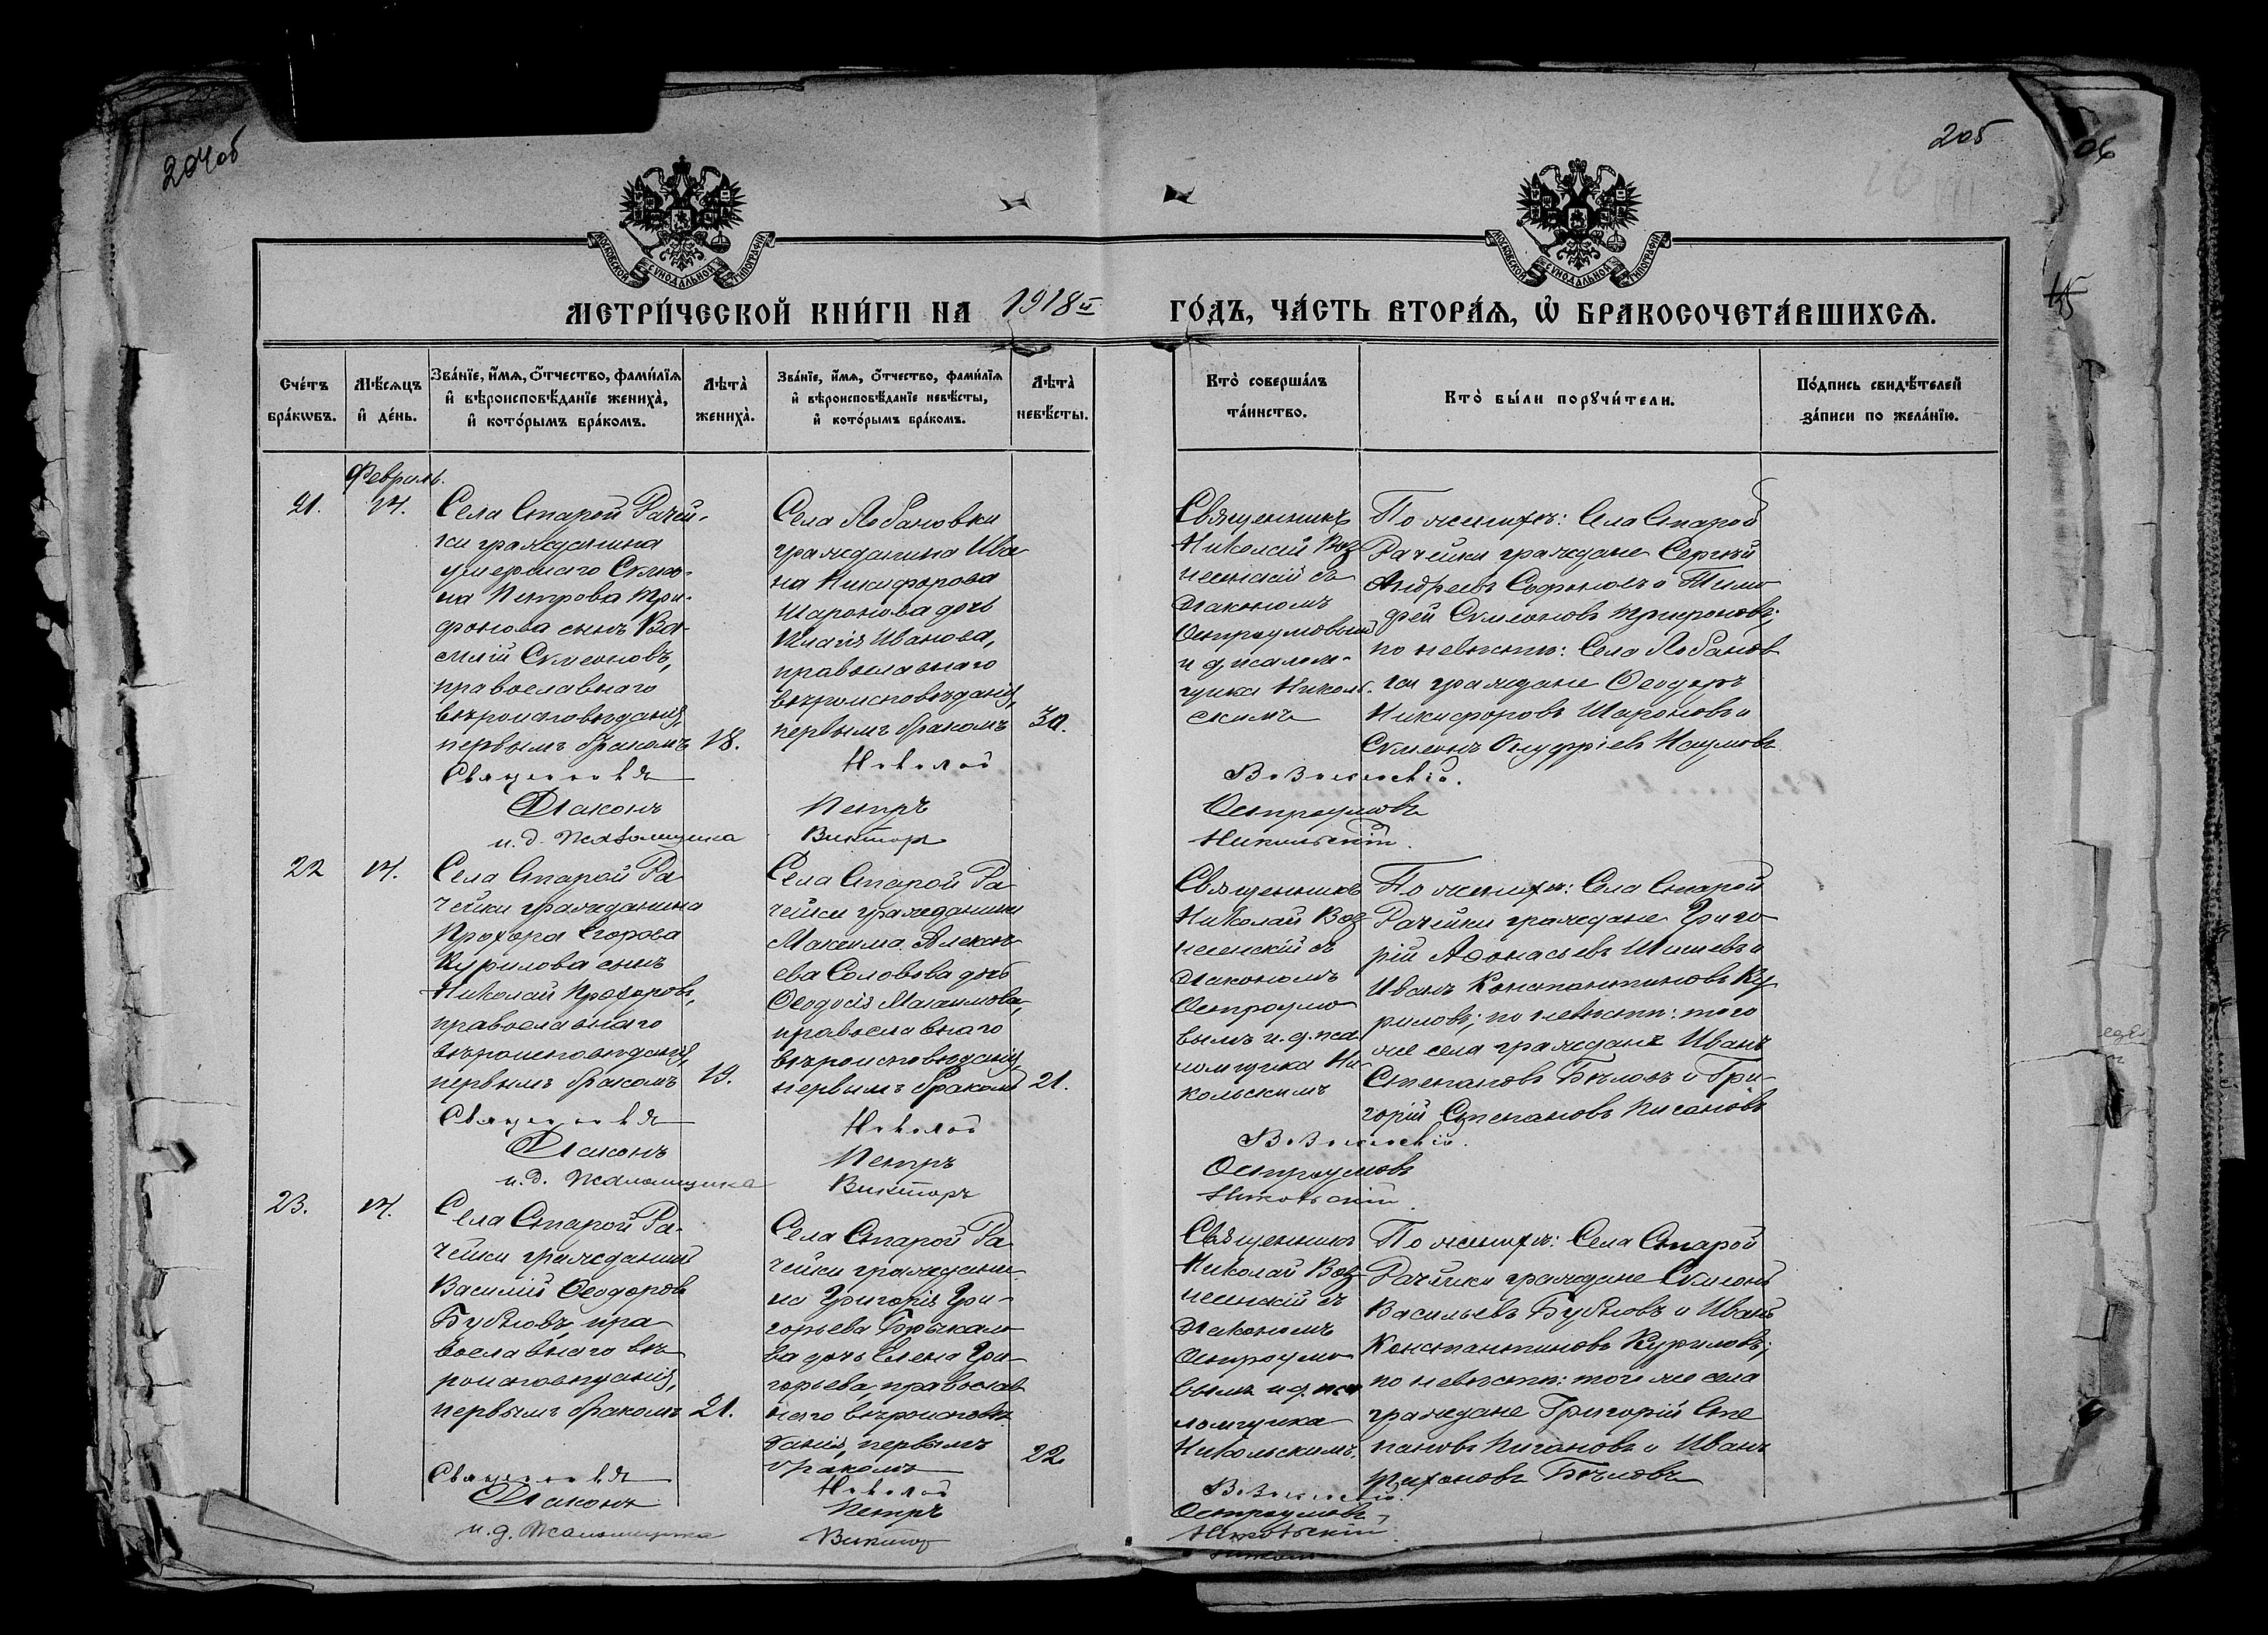 204об
205
06
МОСКОВСКОЙ СѴНОДАЛЬНОЙ ТИПОГРАФІИ
МОСКОВСКОЙ СѴНОДАЛЬНОЙ ТИПОГРАФІИ
МЕТРИ́ЧЕСКОЙ КНИ́ГИ НА 1918й ГО́ДЪ, ЧА́СТЬ ВТОРА́Ѧ, Ѡ҆ БРАКОСОЧЕТА́ВШИХСѦ.
Сче́тъ
бра́кѡвъ.
Мѣ́сѧцъ
и҆ де́нь.
Зва́нїе, и҆́мѧ, ѻ҆́тчество, фами́лїѧ
и҆ вѣроисповѣ́данїе жениха̀,
и҆ кото́рымъ бра́комъ.
Лѣта̀
жениха̀.
Зва́нїе, и҆́мѧ, ѻ҆́тчество, фами́лїѧ
и҆ вѣроисповѣ́данїе невѣ́сты,
и҆ кото́рымъ бра́комъ.
Лѣта̀
невѣ́сты.
Кто̀ соверша́лъ
та́инство.
Кто̀ бы́ли порꙋчи́тели.
По́дпись свидѣ́телей
за́писи по жела́нїю.
Февраль.
21.
14.
Села Старой Рачей-
ки гражданина
умершаго Симео-
на Петрова Три-
фонова сынъ Ва-
силій Симеоновъ,
православнаго
вѣроисповѣданія,
первымъ бракомъ
18.
Села Лобановки
гражданина Ива
на Никифорова
Шаронова дочь
Иванова,
православнаго
вѣроисповѣданія,
первымъ бракомъ
30.
Священникъ
Николай Воз
несенскій съ
Діакономъ
Остроумовымъ
и д. псалом-
щика Николь-
скимъ
По женихѣ: Села Старой
Рачейки граждане Сергѣй
Андреевъ Софоновъ и Тимо
фей Симеоновъ Трифоновъ;
по невѣстѣ: Села Лобанов
ки граждане Ѳеодоръ
Никифоровъ Шароновъ и
Симеонъ Наумовъ
Священникъ
Николай
Вознесенскій.
Діаконъ
Петръ
Остроумовъ
и. д. Псаломщика
Викторъ
Никольскій.
22
14.
Села Старой Ра
чейки гражданина
Прохора Егорова
Курилова сынъ
Николай Прохоровъ,
православнаго
вѣроисповѣданія,
первымъ бракомъ
19.
Села Старой Ра
чейки гражданина
Максима Алексѣ
ева Соловьва дочь
Ѳеодосія Максимова,
православнаго
вѣроисповѣданія,
первымъ бракомъ
21.
Священникъ
Николай Воз
несенскій съ
Діакономъ
Остроумо
вымъ и. д. пса
ломщика Ни
кольскимъ
По женихѣ: Села Старой
Рачейки граждане Григо
рій Аѳонасьевъ Шишевъ и
Иванъ Константиновъ Ку
риловъ; по невѣстѣ: того
же села граждане Иванъ
Степановъ Бѣловъ и Гри-
горій Степановъ
Священникъ
Николай
Вознесенскій.
Діаконъ
Петръ
Остроумовъ
и. д. Псаломщика
Викторъ
Никольскій
23.
14.
Села Старой Ра-
чейки гражданинъ
Василій Ѳеодоровъ
Бубновъ, пра
вославнаго вѣ
роисповѣданія,
первымъ бракомъ
21.
Села Старой Ра
чейки граждани
на Григорія Гри-
горьева
ва дочь Елена Гри-
горьева, православ
наго вѣроисповѣ
данія, первымъ
бракомъ
22
Священникъ
Николай Воз
несенскій съ
Діакономъ
Остроумо
вымъ и д. пса
ломщика
Никольскимъ.
По женихѣ: Села Старой
Рачейки граждане Симеонъ
Васильевъ Бубновъ и Иванъ
Константиновъ Куриловъ;
по невѣстѣ: того же села
граждане Григорій Сте
пановъ и Иванъ
Тихоновъ Бѣловъ
Священникъ
Николай
Вознесенскій.
Діаконъ
Петръ
Остроумовъ
и. д. Псаломщика
Викторъ
Никольскій